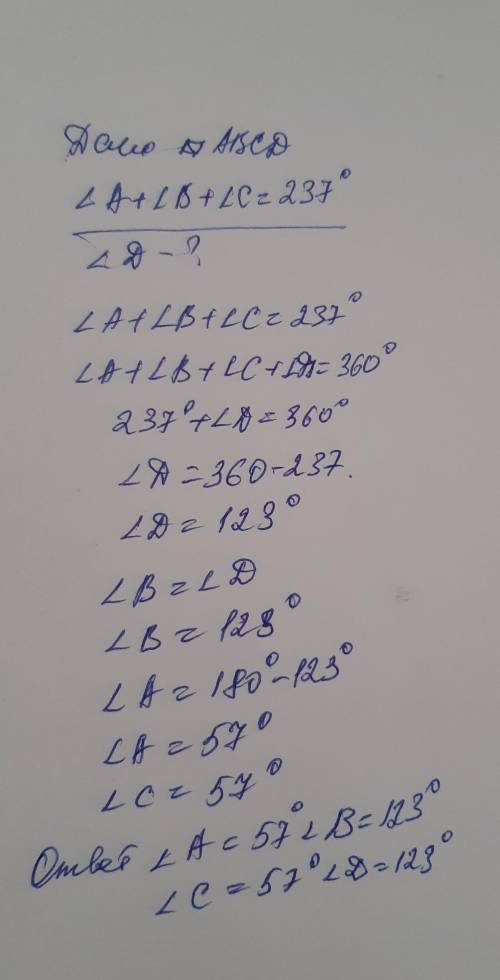 Дано ▱ ABCD
∠A+∠B+∠C=237°
∠D-?
∠A+∠B+∠C=237°
∠A+∠B+∠C+∠D=360°
237°+∠D=360°
∠D=360-237.
∠D=123°
∠B=∠D
∠B=123°
∠A=180°-123°
∠A=57°
∠C=57°
Ответ ∠A=57° ∠B=123°
∠C=57° ∠D=123°